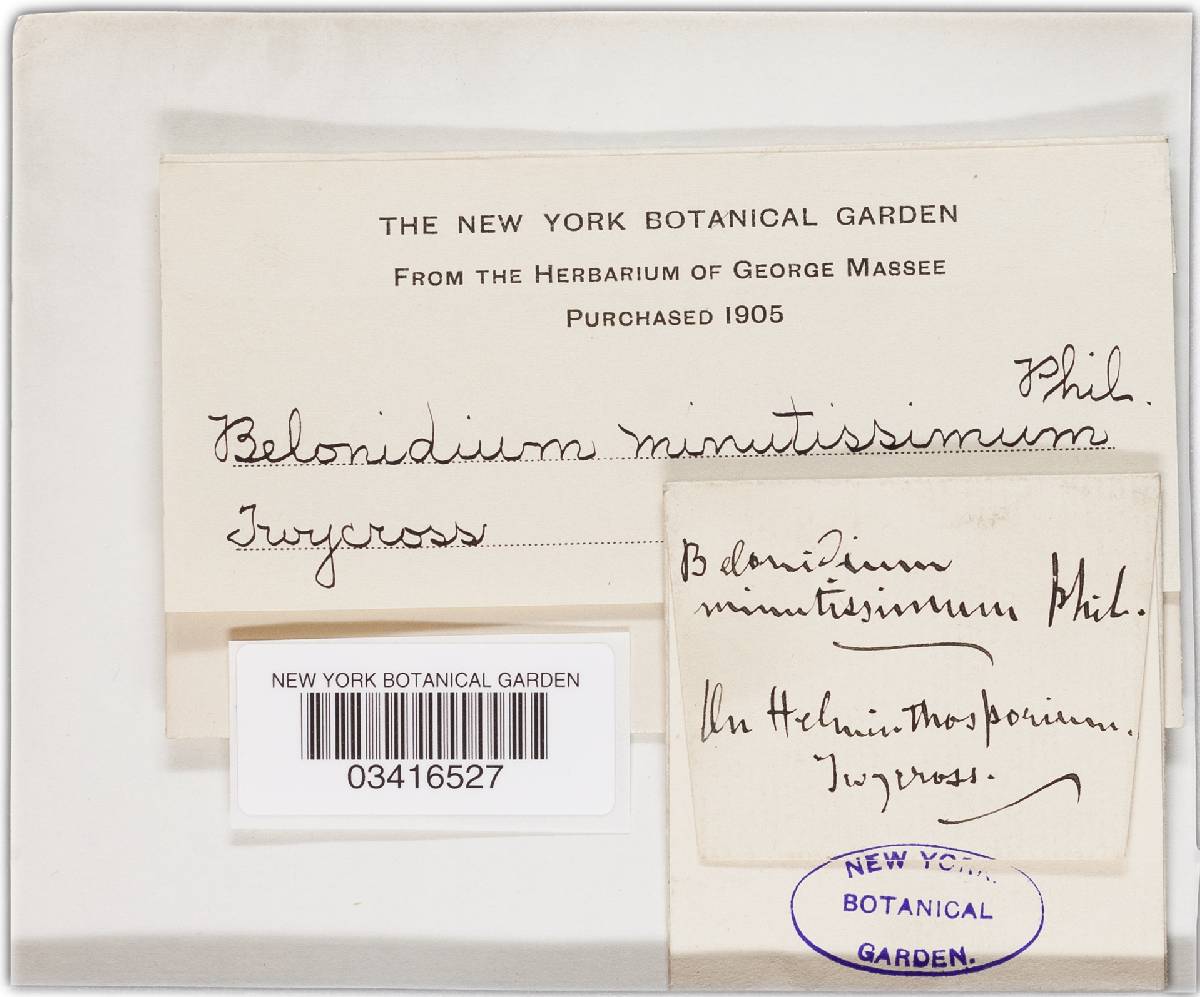 THE NEW YORK BOTANICAL GARDEN
FROM THE HERBARIUM OF GEORGE MASSEE
PURCHASED 1905
Phil.
Belonidium minutissimum
Twycross
Belonidium
minutissimum Phil.
On Helminthosporium.
Twycross.
NEW YORK BOTANICAL GARDEN
03416527
NEW YORK
BOTANICAL
GARDEN.